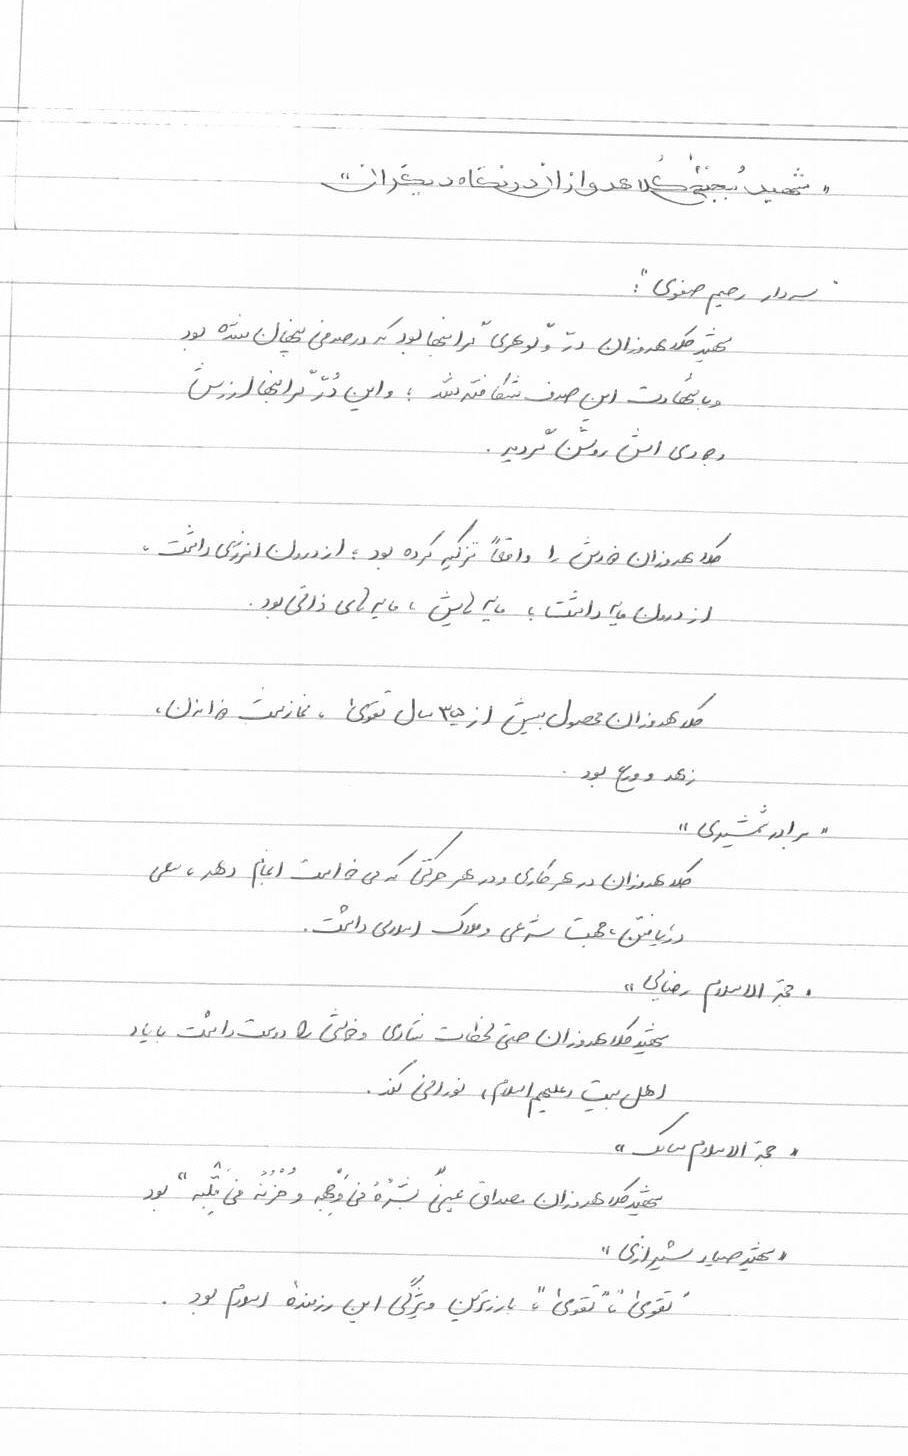 « شهید مجتبیٰ کلاهدوازان در نگاه دیگران »
" سردار رحیم صفوی " :
شهید کلاهدوزان درّ و گوهری گرانبها بود که در صدفی پنهان شده بود
و با شهادت این صدف شکافته شد ؛ و این دُرّ گرانبها ارزش
وجودی اش روشن گردید .
کلاهدوزان خودش را واقعاً تزکیه کرده بود ؛ از درون انرژی داشت ،
از درون مایه داشت ؛ مایه هایش ، مایه های ذاتی بود .
کلاهدوزان محصول بیش از ۳۵ سال تقویٰ ، نماز شب خواندن ،
زهد و ورع بود .
« برادر شمشیری »
کلاهدوزان در هر کاری و در هر حرکتی که می خواست انجام دهد ، سعی
در یافتن حجت شرعی و ملاک اسلامی داشت .
« حجة الاسلام رضایی »
شهید کلاهدوزان حتی لحظات شادی و خوشی را دوست داشت با یاد
اهل بیت (علیهم السلام) نورانی کند .
« حجة الاسلام سالک »
شهید کلاهدوزان مصداق عینی " بُشْرُهُ فی وَجْهِهِ وَ حُزْنُهُ فی قَلْبِهِ " بود
« شهید صیاد شیرازی »
" تقویٰ " ، " تقویٰ " ، بارزترین ویژگی این رزمندهٔ اسلام بود .